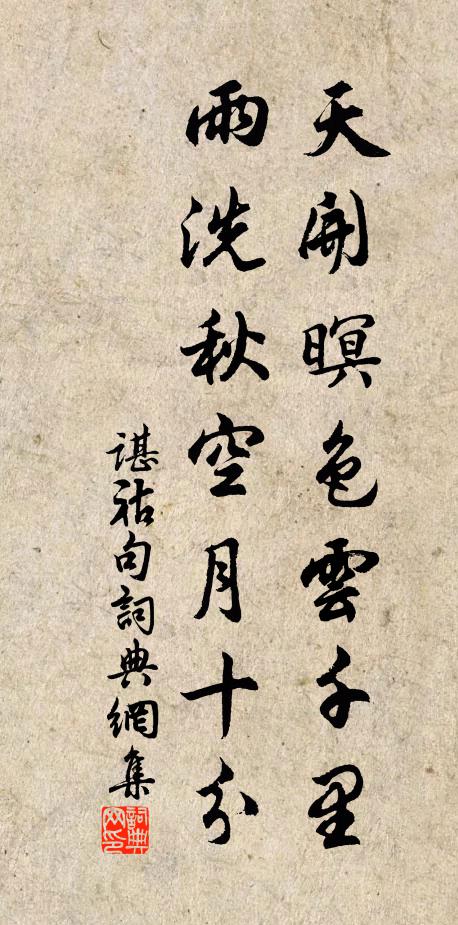 天開暝色雲千里
雨洗秋空月十分
諶祜句詞典網集
詞典网印